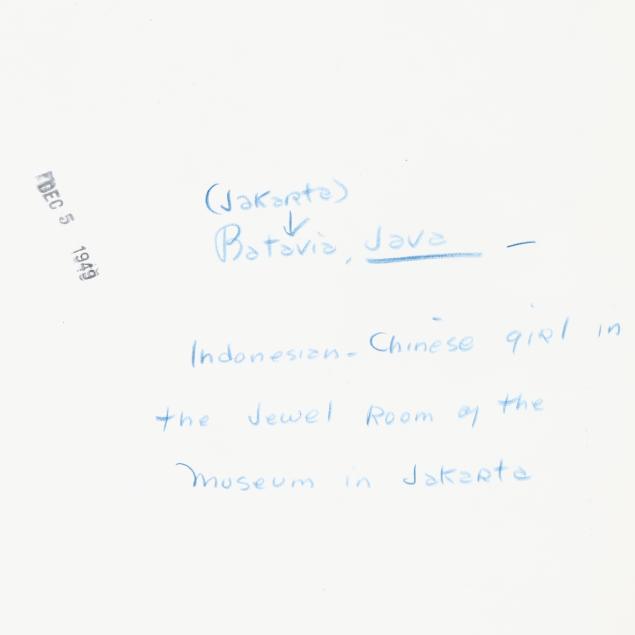 DEC 5 1949
(Jakarta)
Batavia, Java —
Indonesian-Chinese girl in
the Jewel Room of the
Museum in Jakarta